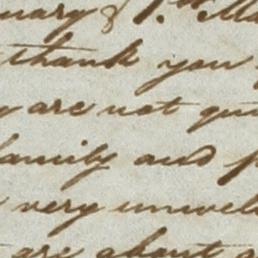 nuary & 1.st Ma
thank you
y are not qui
family and p
very unwell
are about a